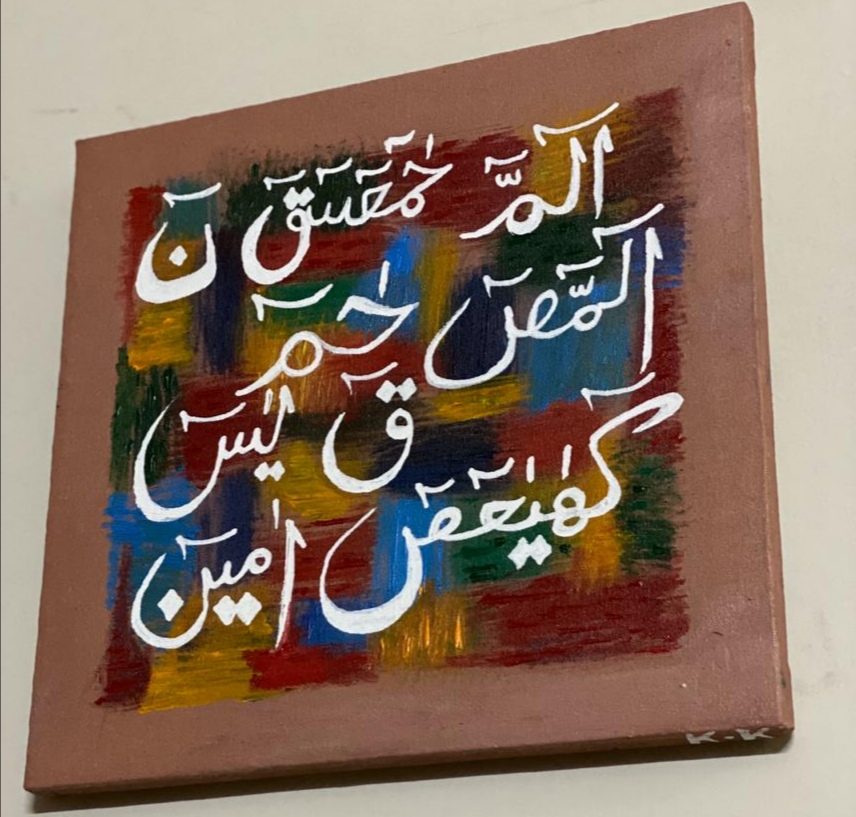 الٓمّٓ حٰمٓعٓسٓقٓ نٓ
الٓمّٓصٓ حٰمٓ
قٓ یٰسٓ
كٓهٰیٰعٓصٓ اٰمِیْن
K.K